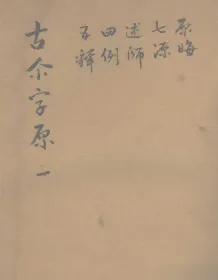 原晦
七源
述師
四例
五釋
古尒字原 一